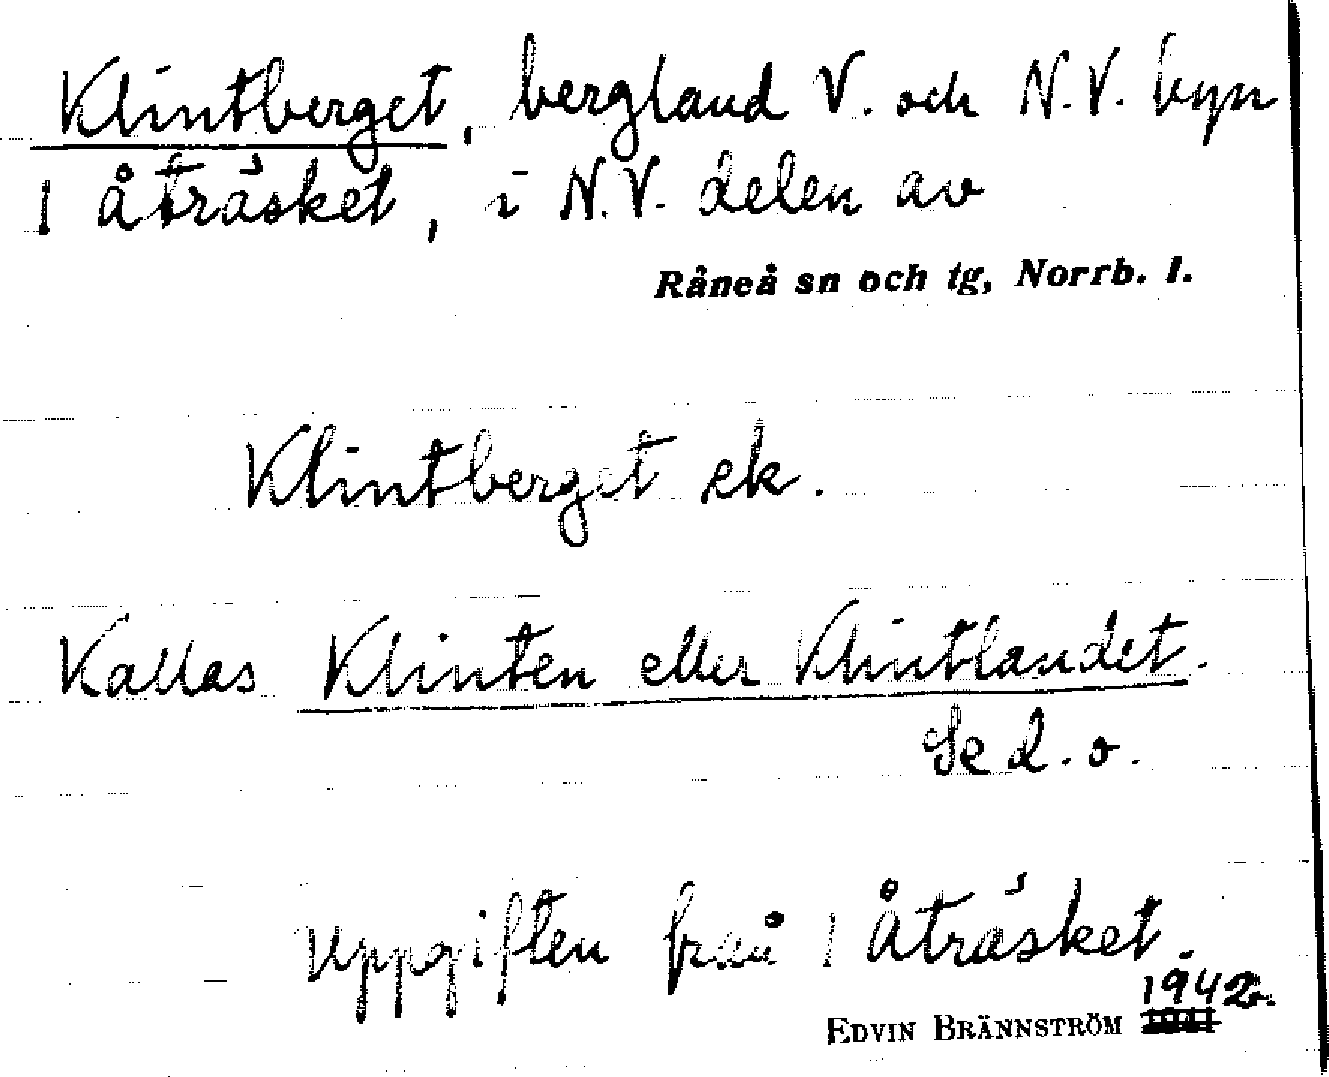 Klintberget, bergland V. och N.V. byn
1 Åträsket, i N.V. delen av
Råneå sn och tg, Norrb. l.
Klintberget ek.
Kallas Klinten eller Klintlandet.
Se d.o.
Uppgiften från 1 Åträsket.
1942
EDVIN BRÄNNSTRÖM